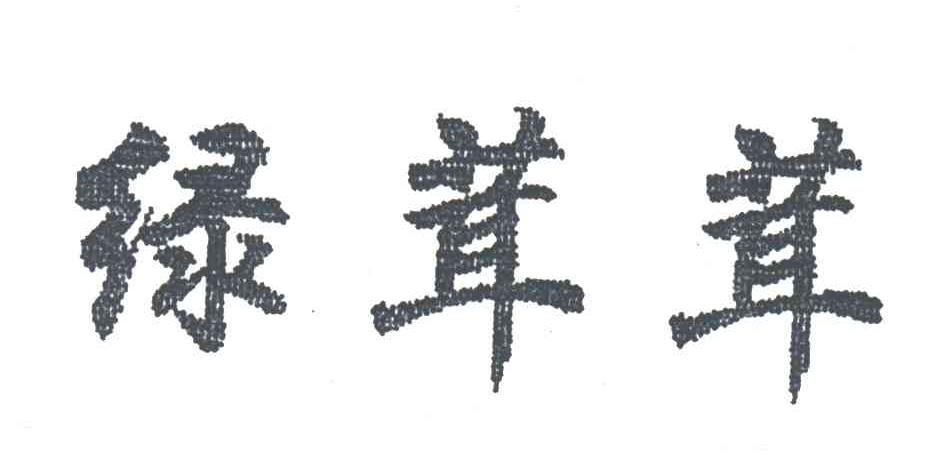 绿茸茸